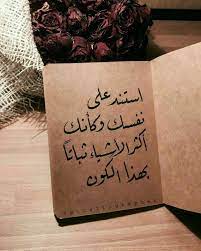 استند على
نفسك وكأنك
أكثر الأشياء ثباتاً
بهذا الكون